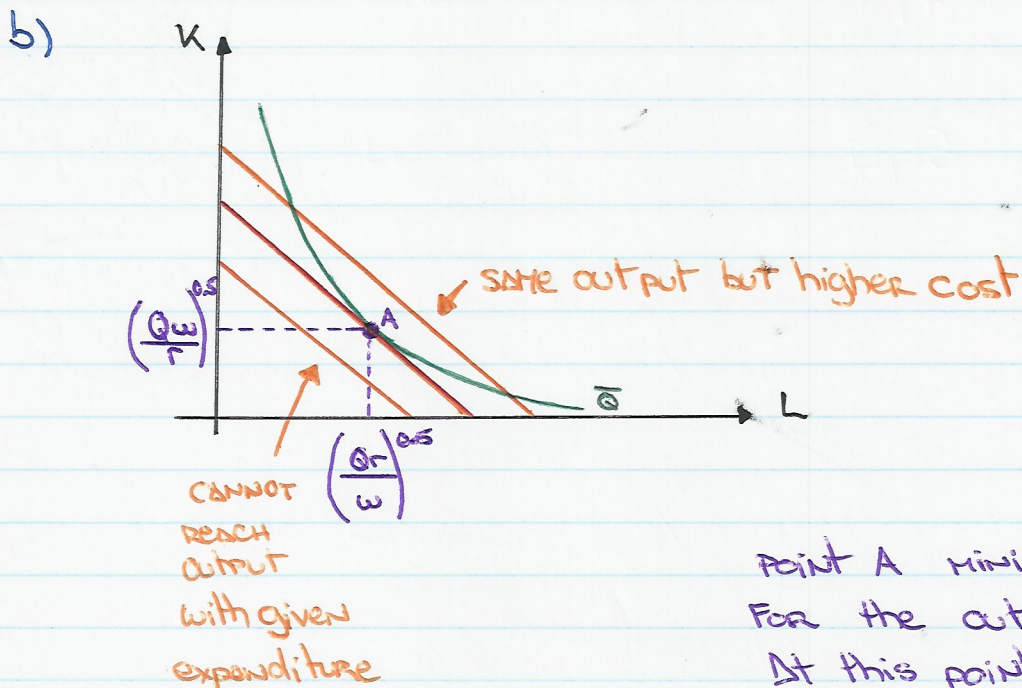 b)
K
SAME output but higher cost
(Qw/r)^0.5
A
Q̅
L
(Qr/w)^0.5
CANNOT
REACH
OUTPUT
with given
expenditure
POINT A MINI
FOR the out
At this poin